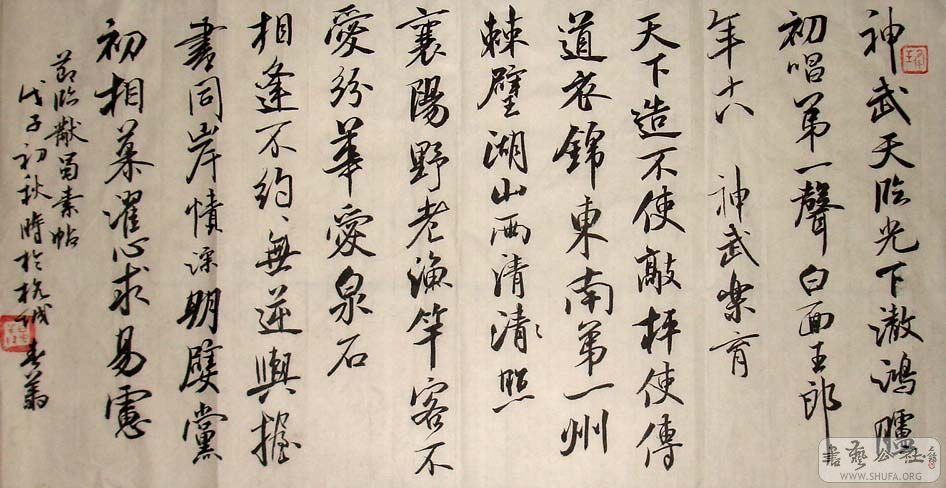 神武天臨光下澈鴻臚
初唱第一聲白面玉郎
年十八 神武樂育
天下造不使敲枰使傳
道衣錦東南第一州
棘璧湖山兩清清照
襄陽野老漁竿客不
愛紛華愛泉石
相逢不約、無逆輿握
書同岸幘淫朋嬖黨
初相慕濯心求易慮
節臨黻蜀素帖
戊子初秋時於杭城
書藝公社
WWW.SHUFA.ORG